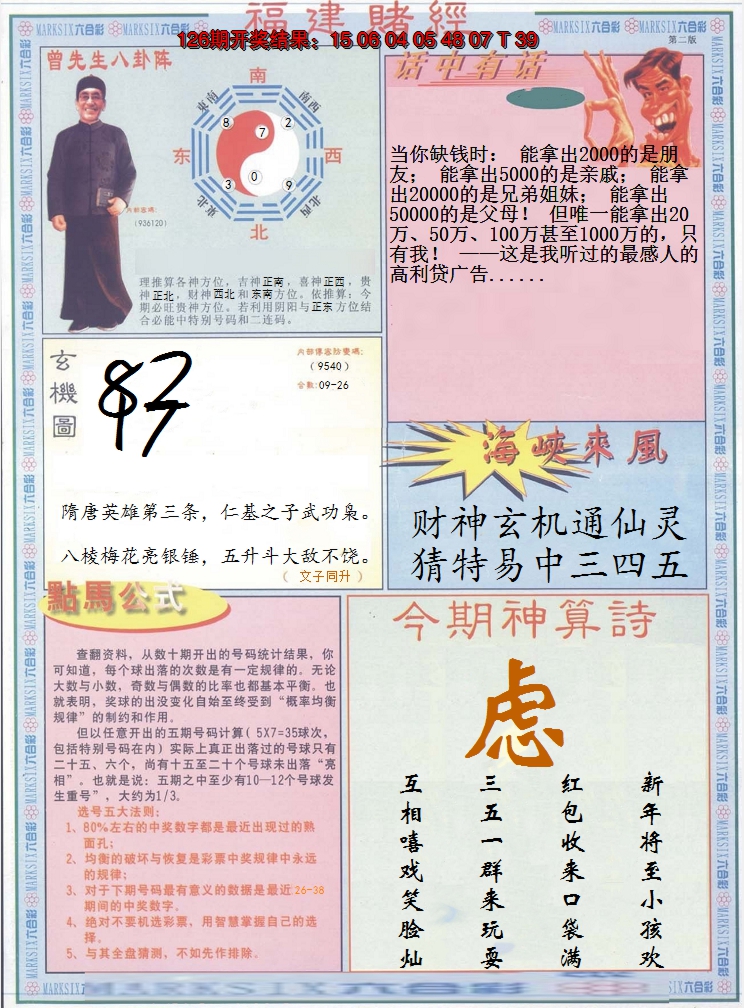 福建賭經
126期开奖结果：15 06 04 05 48 07 T 39
第二版
曾先生八卦阵
南
東南
南西
8
7
2
东
西
3
0
9
東北
北西
北
内部密碼:
(936120)
理推算各神方位，吉神正南，喜神正西，贵
神正北，财神西北和东南方位。依推算：今
期必旺贵神方位。若利用阴阳与正东方位结
合必能中特别号码和二连码。
话中有话
当你缺钱时： 能拿出2000的是朋
友； 能拿出5000的是亲戚； 能拿
出20000的是兄弟姐妹； 能拿出
50000的是父母！ 但唯一能拿出20
万、50万、100万甚至1000万的，只
有我！ ——这是我听过的最感人的
高利贷广告......
玄機圖
(9540)
合數:09-26
隋唐英雄第三条，仁基之子武功枭。
八棱梅花亮银锤，五升斗大敌不饶。
（ 文子同升 ）
海峽來風
财神玄机通仙灵
猜特易中三四五
點馬公式
查翻资料，从数十期开出的号码统计结果，你
可知道，每个球出落的次数是有一定规律的。无论
大数与小数，奇数与偶数的比率也都基本平衡。也
就表明，奖球的出没变化自始至终受到“概率均衡
规律”的制约和作用。
但以任意开出的五期号码计算( 5X7=35球次，
包括特别号码在内) 实际上真正出落过的号球只有
二十五、六个，尚有十五至二十个号球未出落“亮
相”。也就是说：五期之中至少有10—12个号球发
生重号”，大约为1/3。
选号五大法则：
1、80%左右的中奖数字都是最近出现过的熟
面孔；
2、均衡的破坏与恢复是彩票中奖规律中永远
的规律；
3、对于下期号码最有意义的数据是最近26-38
期间的中奖数字。
4、绝对不要机选彩票，用智慧掌握自己的选
择。
5、与其全盘猜测，不如先作排除。
今期神算詩
虑
新年将至小孩欢
红包收来口袋满
三五一群来玩耍
互相嘻戏笑脸灿
MARKSIX六合彩